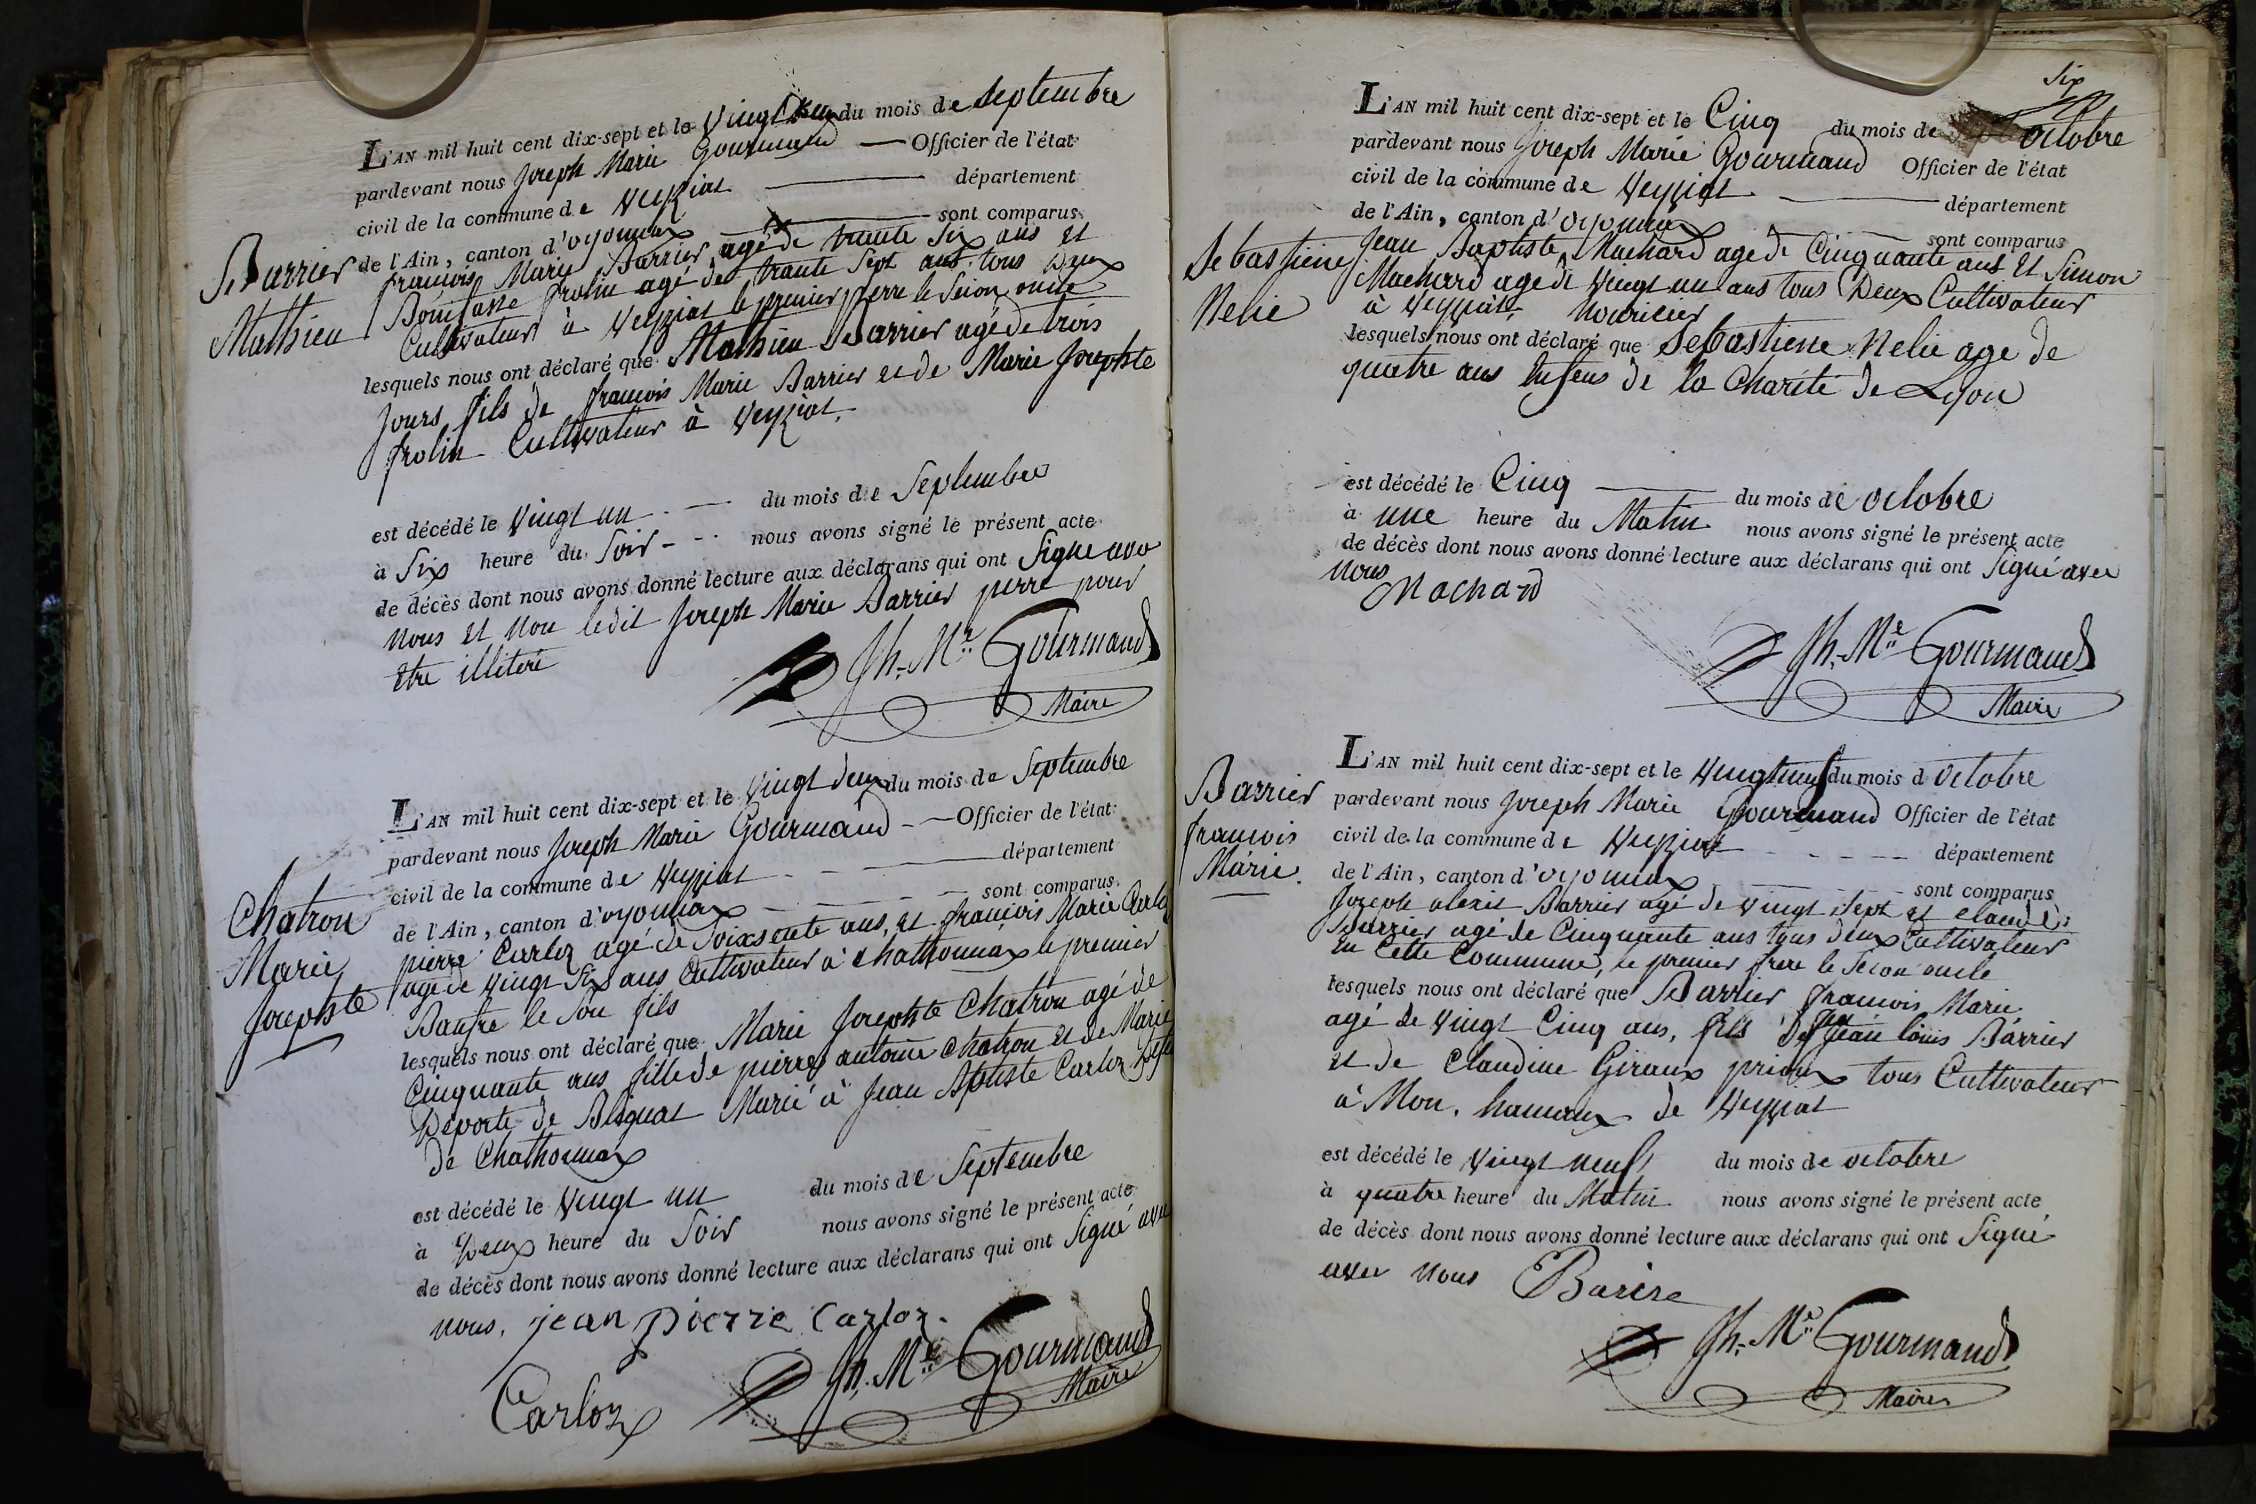 L'AN mil huit cent dix-sept et le vingt deux du mois de Septembre
pardevant nous Joseph Marie Gourmand Officier de l'état
civil de la commune de Veyziat département
de l'Ain, canton d'oyonnax sont comparus
Barrier
Mathieu
francois Marie Barrier agé de trante Six ans et
Bonifasse frolin agé de trante Sept ans tous Deux
Cultivateur à Veyziat le premier perre le Secon oncle
lesquels nous ont déclaré que Mathieu Barrier agé de trois
Jours fils de francois Marie Barrier et de Marie Josephte
frolin Cultivateur à Veyziat.
est décédé le vingt un du mois de Septembre
à Six heure du Soir nous avons signé le présent acte
de décès dont nous avons donné lecture aux déclarans qui ont Signe avec
nous et non ledit Joseph Marie Barrier perre pour
etre illiteré
Jh. Mie Gourmand
Maire
L'AN mil huit cent dix-sept et le vingt deux du mois de Septembre
pardevant nous Joseph Marie Gourmand Officier de l'état
civil de la commune de Veyziat département
de l'Ain, canton d'oyonnax sont comparus
Chatron
Marie
Josephte
pierre Carloz agé de Soixsente ans, et francois Marie Carloz
agé de vingt Six ans Cultivateur à Chathonnax le premier
le Son fils
lesquels nous ont déclaré que Marie Josephte Chatron agé de
Cinquante ans fille de pierre antoine Chatron et de Marie
Deporte de Marié à Jean Aptiste Carloz
de Chathonnax
est décédé le vingt un du mois de Septembre
à Deux heure du Soir nous avons signé le présent acte
de décès dont nous avons donné lecture aux déclarans qui ont Signé avec
nous. jean pierre Carloz.
Carloz
Jh. Mie Gourmand
Maire
Six
L'AN mil huit cent dix-sept et le Cinq du mois de octobre
pardevant nous Joseph Marie Gourmand Officier de l'état
civil de la commune de Veyziat département
de l'Ain, canton d'oyonnax sont comparus
Sebastiene
Nelie
Jean Baptiste Machard age de Cinquante ans et Simon
Machard age de Vingt un ans tous Deux Cultivateur
à Veyziat nouricier
lesquels nous ont déclaré que Sebastiene Nelie age de
quatre ans Enfens de la Charité de Lyon
est décédé le Cinq du mois de octobre
à une heure du Matin nous avons signé le présent acte
de décès dont nous avons donné lecture aux déclarans qui ont Signé avec
nous
Machard
Jh. Mie Gourmand
Maire
L'AN mil huit cent dix-sept et le Vingtneuf du mois d octobre
pardevant nous Joseph Marie Gourmand Officier de l'état
civil de la commune de Veyziat département
de l'Ain, canton d'oyonnax sont comparus
Barrier
francois
Marie.
Joseph alexis Barrier agé de vingt Sept et claude
Barrier agé de Cinquante ans tous deux Cultivateur
en Cette Commune, le premier frere le Secon oncle
lesquels nous ont déclaré que Barrier francois Marie
agé de Vingt Cinq ans, fils De feu Jean louis Barrier
et de Claudine Giraux tous Cultivateur
à Mon. hamaux de Veyziat
est décédé le vingt neuf du mois de octobre
à quatre heure du Matin nous avons signé le présent acte
de décès dont nous avons donné lecture aux déclarans qui ont Signé
avec nous Barire
Jh. Mie Gourmand
Maire